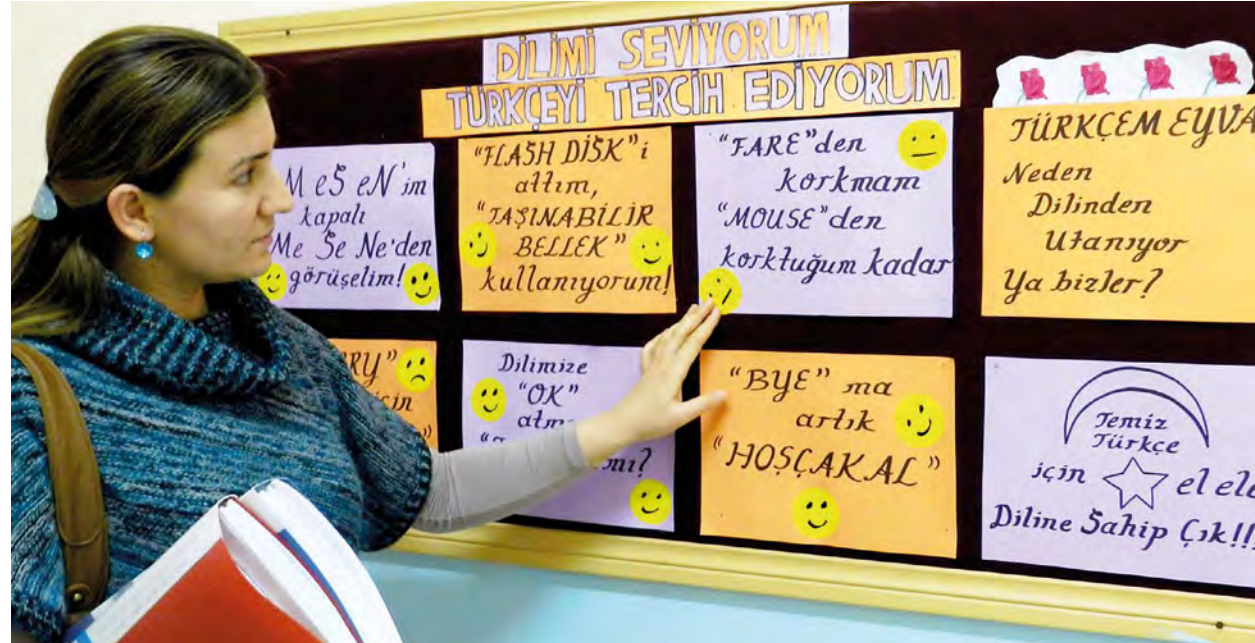 DİLİMİ SEVİYORUM
TÜRKÇEYİ TERCİH EDİYORUM
MeSeN'im
kapalı
Me Se Ne'den
görüşelim!
"FLASH DİSK"i
attım,
"TAŞINABİLİR
BELLEK"
kullanıyorum!
"FARE"den
korkmam
"MOUSE"den
korktuğum kadar
TÜRKÇEM
Neden
Dilinden
Utanıyor
Ya bizler?
Dilimize
"OK"
"BYE" ma
artık
"HOŞÇAKAL"
Temiz
Türkçe
için el ele
Diline Sahip Çık!!!